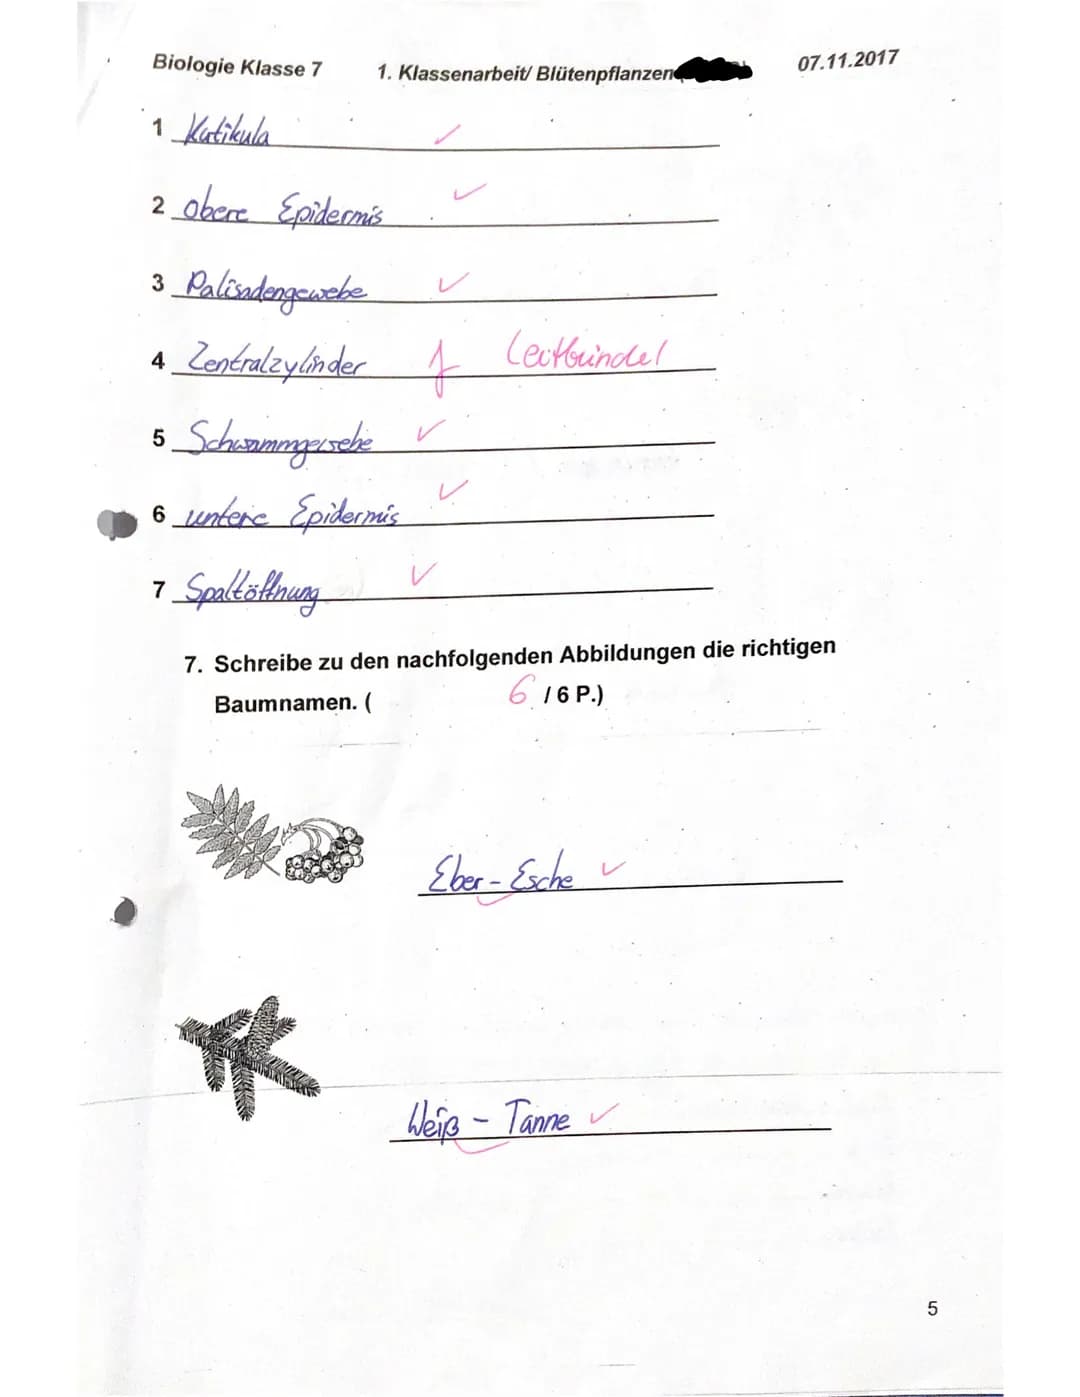 Biologie Klasse 7 1. Klassenarbeit/ Blütenpflanzen 07.11.2017
1 Kutikula
2 obere Epidermis
3 Palisadengewebe
4 Zentralzylinder f Leitbündel
5 Schwammgewebe
6 untere Epidermis
7 Spaltöffnung
7. Schreibe zu den nachfolgenden Abbildungen die richtigen
Baumnamen. ( 6 / 6 P.)
Eber - Esche
Weiß - Tanne
5